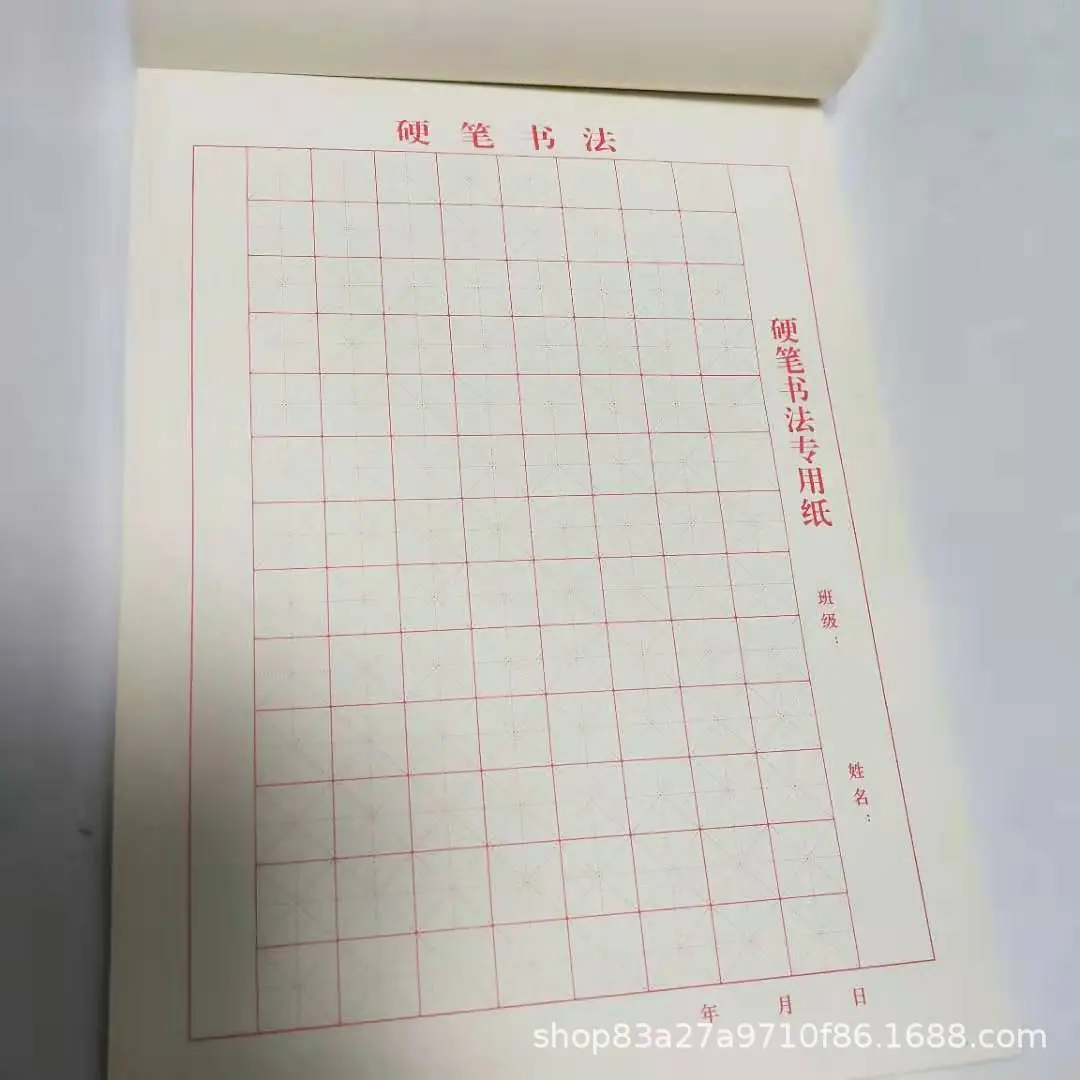 硬笔书法
硬笔书法专用纸
班级：
姓名：
年 月 日
shop83a27a9710f86.1688.com